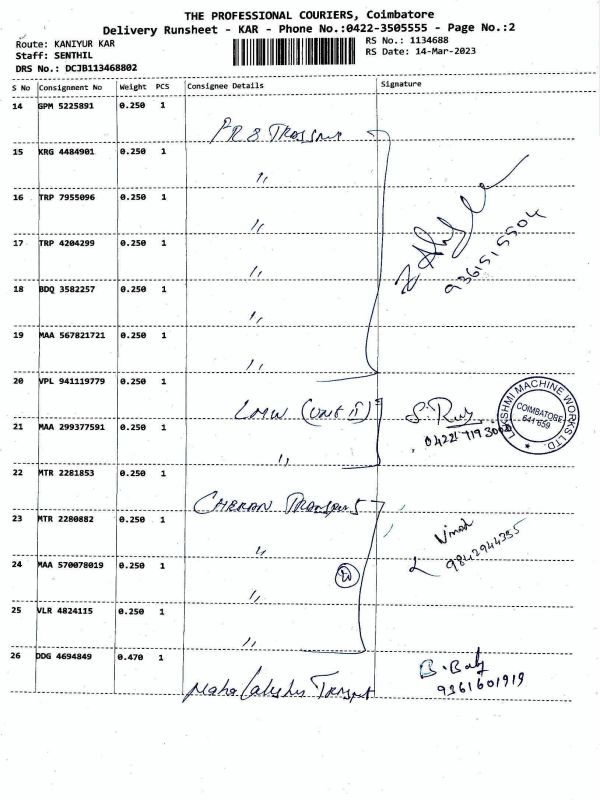 THE PROFESSIONAL COURIERS, Coimbatore
Delivery Runsheet - KAR - Phone No.:0422-3505555 - Page No.:2
Route: KANIYUR KAR
RS No.: 1134688
Staff: SENTHIL
RS Date: 14-Mar-2023
DRS No.: DCJB113468802
S No Consignment No Weight PCS Consignee Details Signature
14 GPM 5225891 0.250 1
15 KRG 4484901 0.250 1
〃
16 TRP 7955096 0.250 1
〃
17 TRP 4204299 0.250 1
〃
9361515504
18 BDQ 3582257 0.250 1
〃
19 MAA 567821721 0.250 1
〃
20 VPL 941119779 0.250 1
LMW (Unit II)
LAKSHMI MACHINE WORKS LTD.
COIMBATORE
641 659
21 MAA 299377591 0.250 1
〃
22 MTR 2281853 0.250 1
Transport
23 MTR 2280882 0.250 1
〃
24 MAA 570078019 0.250 1
〃
25 VLR 4824115 0.250 1
〃
26 DDG 4694849 0.470 1
Maha Lakshmi Transport